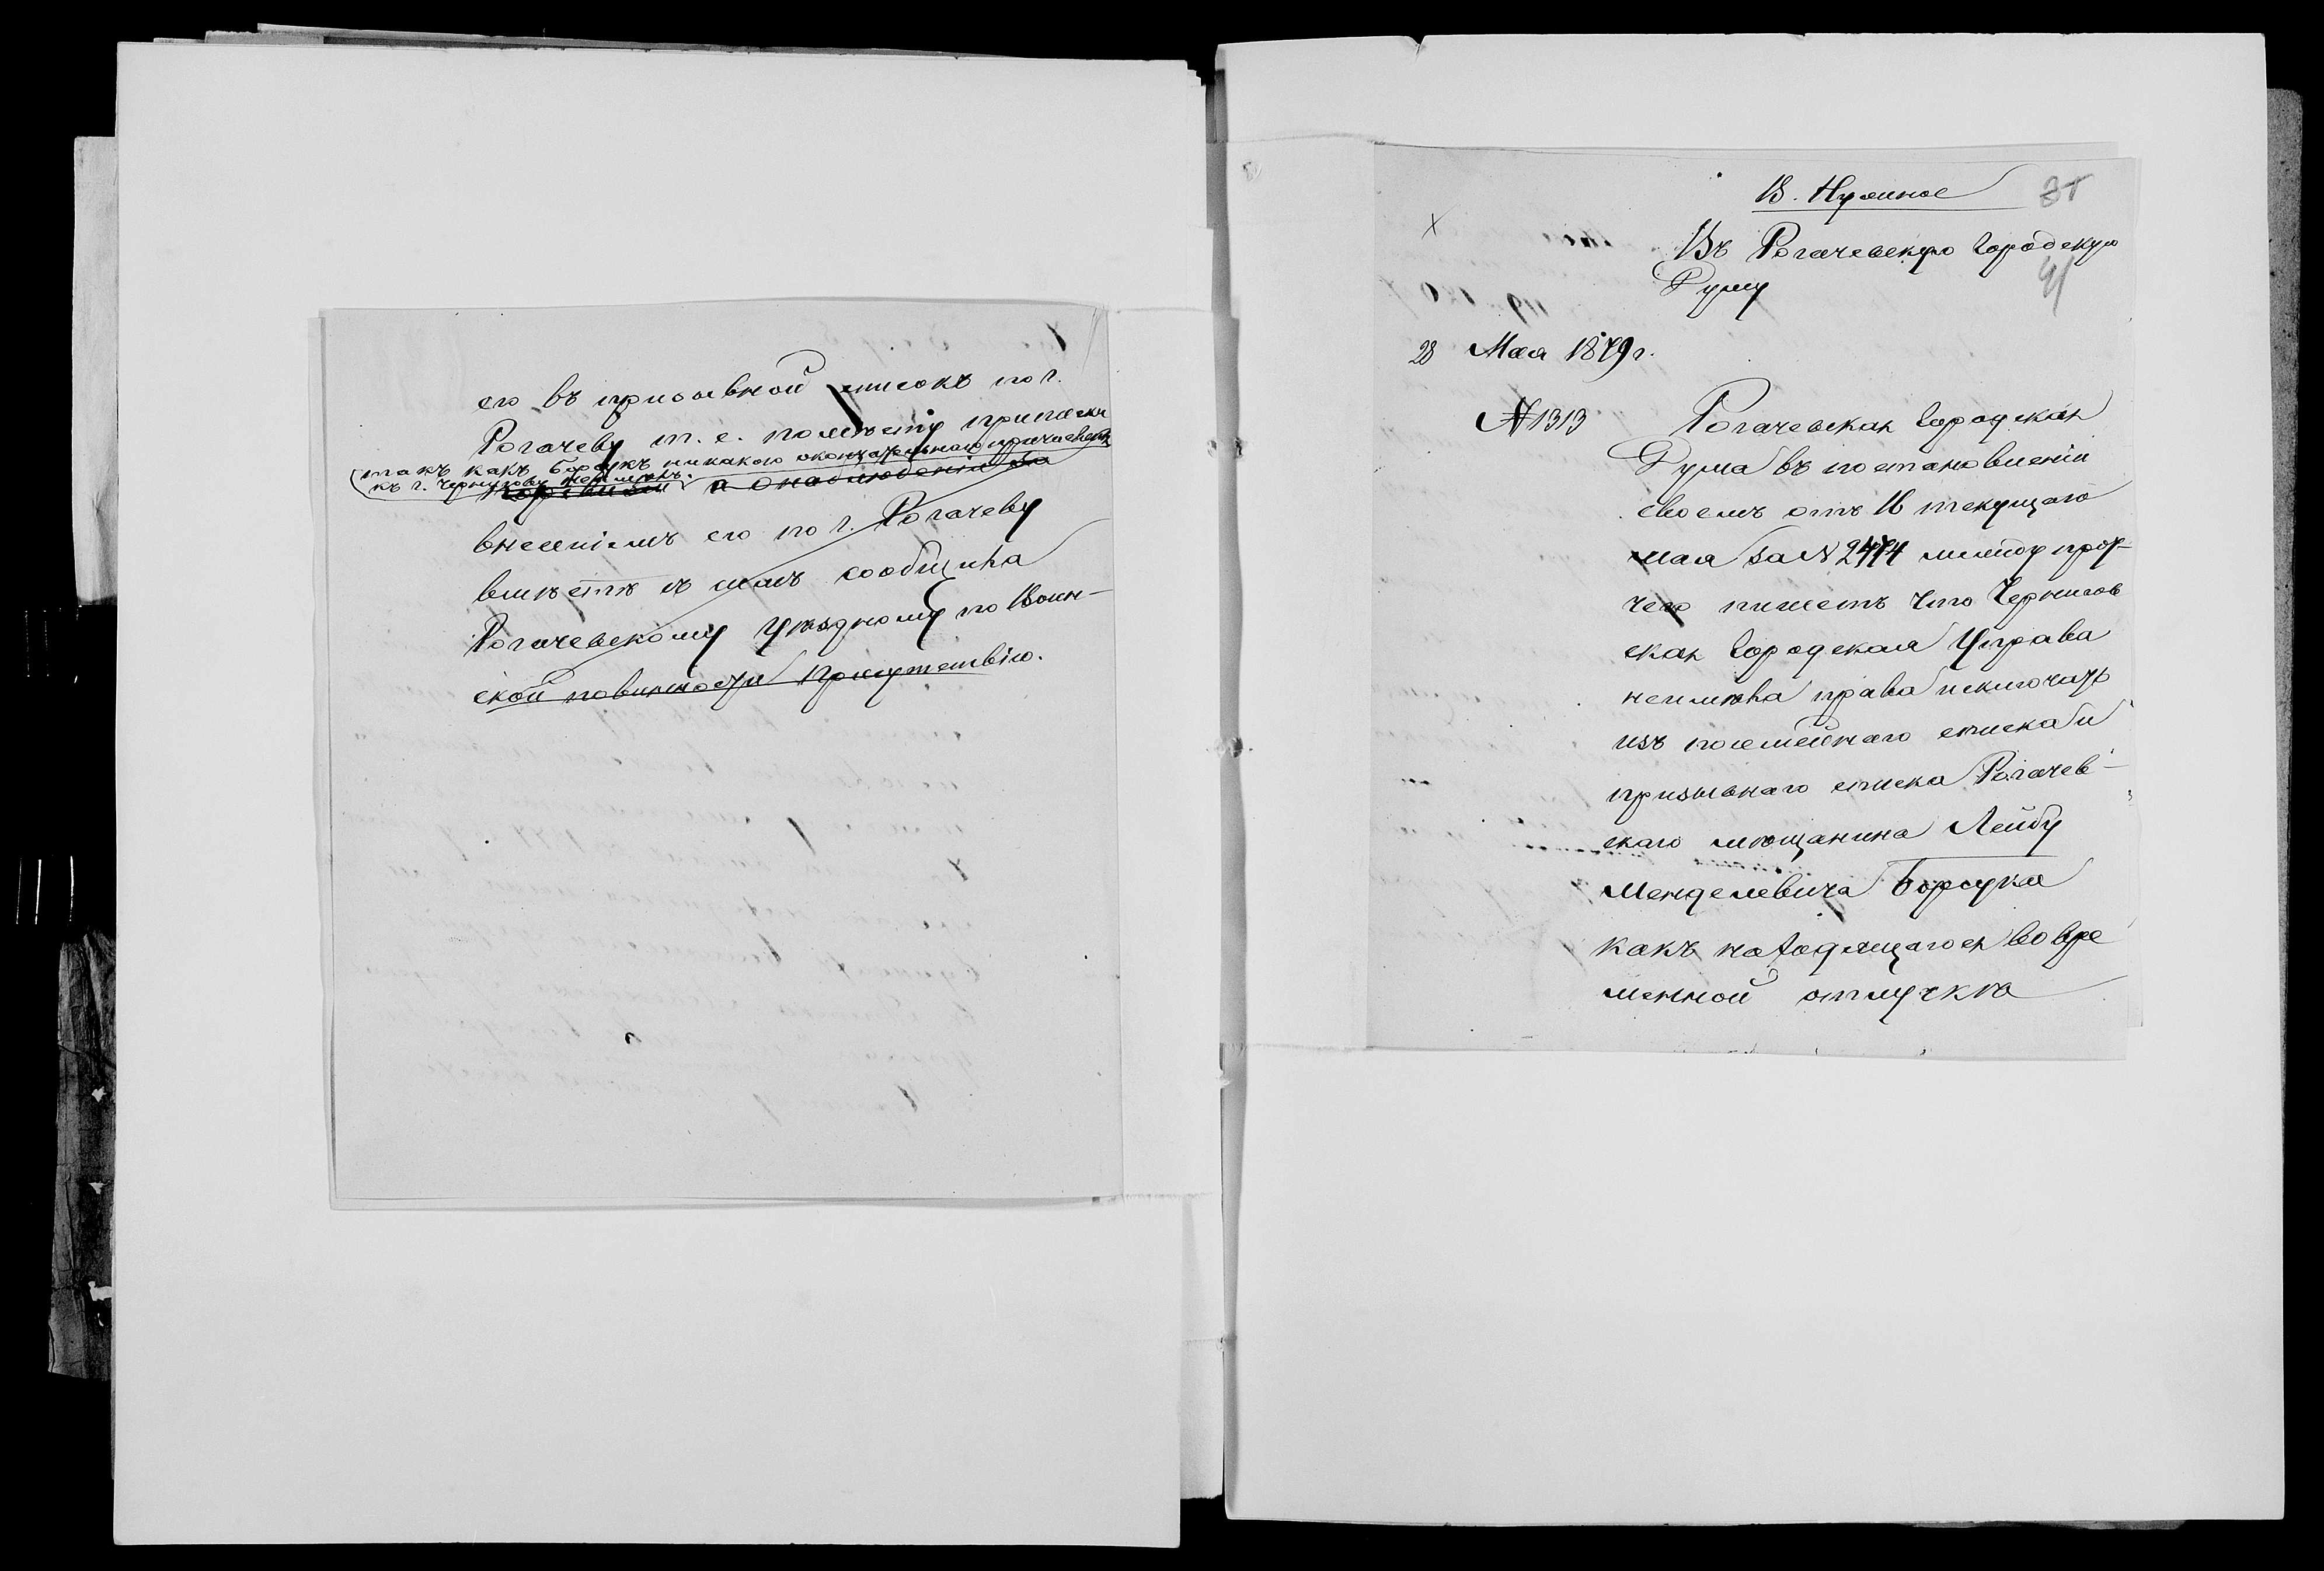 его въ призывной списокъ по г.
Рогачеву т. е. по месту приписки
(такъ какъ Борсукъ никакого окончательнаго причисленія
къ г. Чернигову неимеѣтъ.
по ревизіи а о наблюденіи за
внесеніемъ его по г. Рогачеву
вместѣ съ симъ сообщѣно
Рогачевскому Уѣздному по Воин-
ской повинности Присутствію.
В. Нужное 35
Въ Рогачевскую Городскую
Думу
41
28 Мая 1879 г.
№ 1313 Рогачевская Городская
Дума въ постановленіи
своемъ отъ 16 текущаго
мая за № 2474 между проч-
чего пишетъ что Чернигов
ская Городская Управа
неимѣла права исключать
изъ посемейнаго списка и
призывнаго списка Рогачев-
скаго мѣщанина Лейбу
Менделевича Борсука
какъ находящагося во вре
менной отлучкѣ